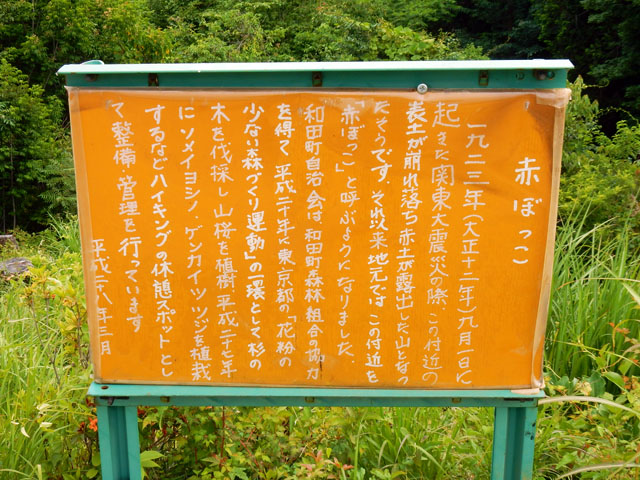 赤ぼっこ
一九二三年(大正十二年)九月一日に
起きた関東大震災の際、この付近の
表土が崩れ落ち赤土が露出した山となっ
たそうです。それ以来地元では この付近を
「赤ぼっこ」と呼ぶようになりました。
和田町自治会は、和田町森林組合の協力
を得て、平成二十年に東京都の「花粉の
少ない森づくり運動」の一環として杉の
木を伐採し山桜を植樹 平成二十七年
にソメイヨシノ・ゲンカイツツジを植栽
するなどハイキングの休憩スポットとし
て整備・管理を行っています
平成二八年三月